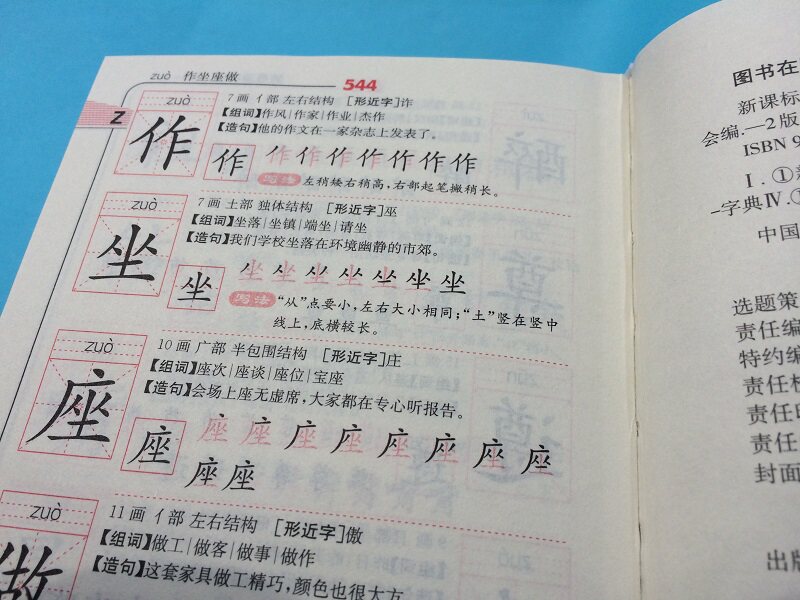 zuò 作坐座做
544
Z
zuò
作
7画 亻部 左右结构 [形近字]诈
【组词】作风|作家|作业|杰作
【造句】他的作文在一家杂志上发表了。
作 作 作 作 作 作 作 作
写法 左稍矮右稍高,右部起笔撇稍长。
zuò
坐
7画 土部 独体结构 [形近字]巫
【组词】坐落|坐镇|端坐|请坐
【造句】我们学校坐落在环境幽静的市郊。
坐 坐 坐 坐 坐 坐 坐 坐
写法 “从”点要小,左右大小相同;“土”竖在竖中
线上,底横较长。
zuò
座
10画 广部 半包围结构 [形近字]庄
【组词】座次|座谈|座位|宝座
【造句】会场上座无虚席,大家都在专心听报告。
座 座 座 座 座 座 座 座 座
座 座
zuò
做
11画 亻部 左右结构 [形近字]傲
【组词】做工|做客|做事|做作
【造句】这套家具做工精巧,颜色也很大方
图书在
新课标
会编.—2版
ISBN 9
Ⅰ.①
-字典Ⅳ.①
中国
选题策
责任编
特约编
责任校
责任印
责任
封面
出版